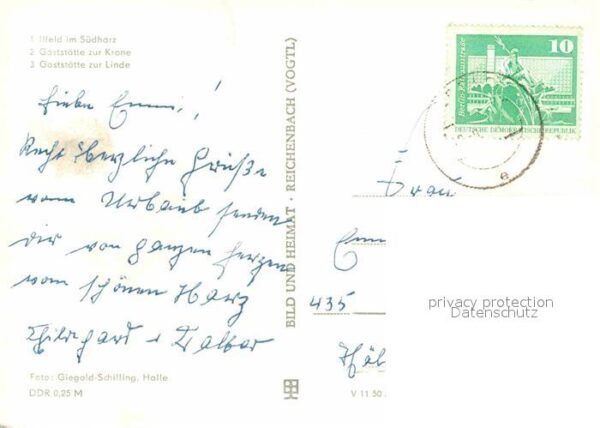 1 Ilfeld im Südharz
2 Gaststätte zur Krone
3 Gaststätte zur Linde
Liebe Emmi!
Recht herzliche Grüße
vom Urlaub senden
dir von ganzen Herzen
vom schönen Harz
Hildegard +
Foto: Giegold-Schilling, Halle
DDR 0,25 M
BILD UND HEIMAT · REICHENBACH (VOGTL)
V 11 50
10
DEUTSCHE DEMOKRATISCHE REPUBLIK
Frau
435
privacy protection
Datenschutz